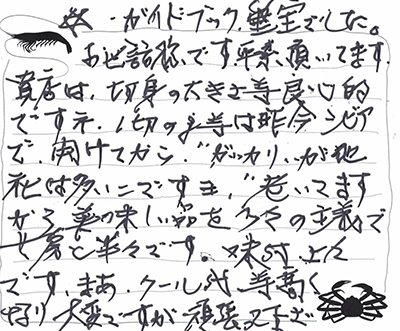 ・ガイドブック、重宝でした。
お世話様です 平素、頂いてます。
貴店は、切身の大きさ等良心的
ですネ、1切の身等は昨今シビア
で、開けてから、"ガッカリ、が他
社は多いことですョ、"老いてます
から 美味しい品を少々の主義で
女房と半々です。又味付、上々
です、まあ、クール代、等高く
なり大変ですが頑張って下さ